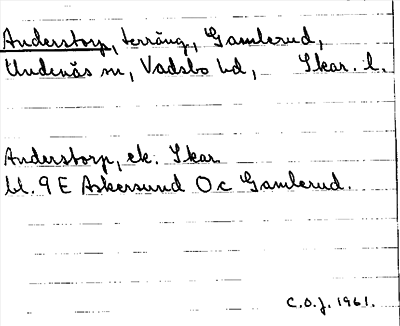 Anderstorp, terräng, Gamlerud,
Undenäs sn, Vadsbo hd, Skar. l.
Anderstorp, ek. Skar.
bl. 9 E Askersund O c Gamlerud.
C.O.J. 1961.